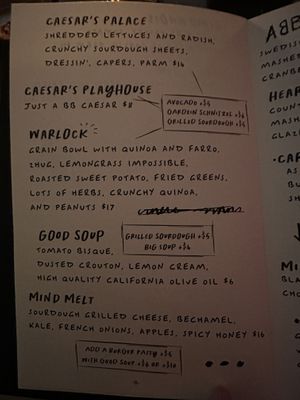 CAESAR'S PALACE
SHREDDED LETTUCES AND RADISH,
CRUNCHY SOURDOUGH SHEETS,
DRESSIN', CAPERS, PARM $16
CAESAR'S PLAYHOUSE
JUST A BB CAESAR $8
AVOCADO +$5
OARDEIN SCHNITZEL +$6
GRILLED SOURDOUGH +$5
WARLOCK
GRAIN BOWL WITH QUINOA AND FARRO,
ZHUG, LEMONGRASS IMPOSSIBLE,
ROASTED SWEET POTATO, FRIED GREENS,
LOTS OF HERBS, CRUNCHY QUINOA,
AND PEANUTS $17
GOOD SOUP
TOMATO BISQUE,
DUSTED CROUTON, LEMON CREAM,
HIGH QUALITY CALIFORNIA OLIVE OIL $6
GRILLED SOURDOUGH +$5
BIG SOUP +$4
MIND MELT
SOURDOUGH GRILLED CHEESE, BECHAMEL,
KALE, FRENCH ONIONS, APPLES, SPICY HONEY $16
ADD A BURGER PATTY +$6
WITH GOOD SOUP +$6 OR +$10
ABE
SWEDIS
MASHE
CRANB
HEAR
COUN
MASH
GLAZ
CAP
AS
BU
SH
MI
BLA
CHO